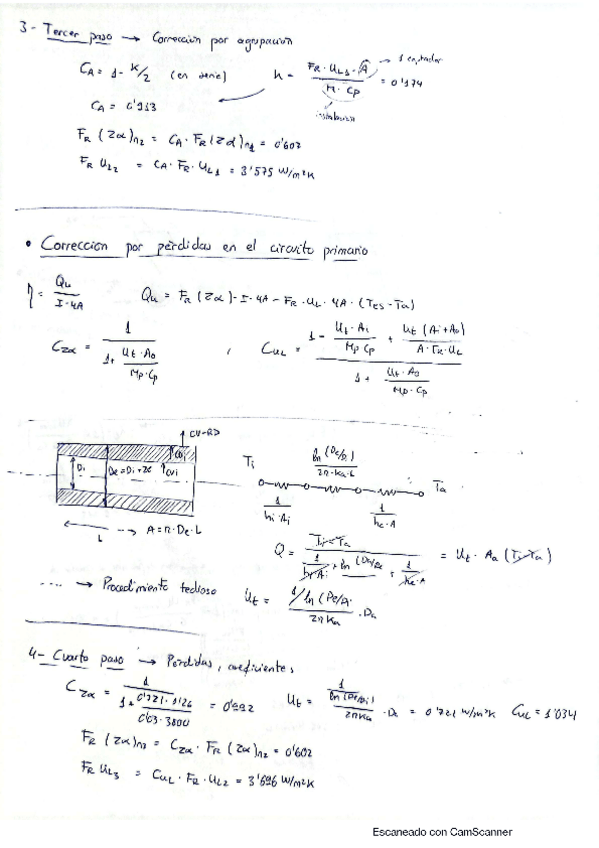 3- Tercer paso → Corrección por agrupación
C_A = 1 - K/2 (en serie) K = F_R · U_L1 · A / M · Cp = 0'174
1 captador
C_A = 0'913
F_R (Zα)n2 = C_A · F_R (Zα)n1 = 0'607
F_R U_L2 = C_A · F_R · U_L1 = 3'575 W/m²K
• Corrección por pérdidas en el circuito primario
η = Qu / I·4A Qu = F_R (Zα) - I · 4A - F_R · U_L · 4A · (Tes - Ta)
C_Zα = 1 / (1 + Ut · Ao / Mp · Cp) , C_UL = (1 - Ut · Ai / Mp Cp + Ut (Ai + Ao) / A · F_R · U_L) / (1 + Ut · Ao / Mp · Cp)
CV-RD
CDi
CVi
Di De = Di + 2e
L → A = π · De · L
Ti Ta
1 / hi · Ai ln (De/Di) / 2π · Ka · L 1 / he · A
Q = Ti - Ta / (1 / hi Ai + ln (De/Di) + 1 / he · A) = Ut · Aa (Ti - Ta)
.... → Procedimiento tedioso Ut = 1 / ln (De/Di / 2π Ka · De
4- Cuarto paso → Pérdidas, coeficientes
C_Zα = 1 / (1 + 0'721 · 9'126 / 0'03 · 3800) = 0'992 Ut = 1 / (ln (De/Di) / 2π Ka · De = 0'721 W/m²K C_UL = 1'034
F_R (Zα)n3 = C_Zα · F_R (Zα)n2 = 0'602
F_R U_L3 = C_UL · F_R · U_L2 = 3'696 W/m²K
Escaneado con CamScanner